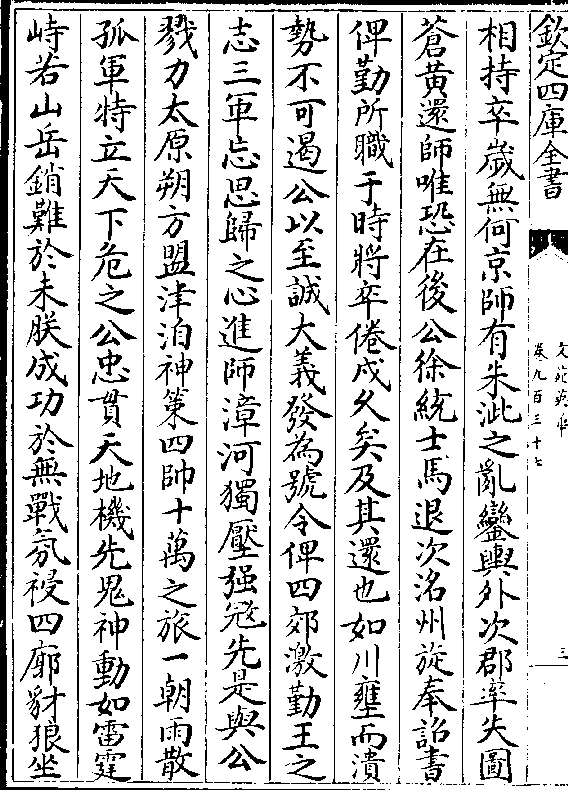 欽定四庫全書
文苑英華
卷九百三十七
三
相持卒歲無何京師有朱泚之亂鑾輿外次郡率失圖
蒼黃還師唯恐在後公徐統士馬退次洺州旋奉詔書
俾勤所職于時將卒倦戍久矣及其還也如川壅而潰
勢不可遏公以至誠大義發為號令俾四郊激勤王之
志三軍忘思歸之心進師漳河獨壓强冦先是與公
戮力太原朔方盟津洎神策四帥十萬之旅一朝雨散
孤軍特立天下危之公忠貫天地機先鬼神動如雷霆
峙若山岳銷難於未朕成功於無戰氛祲四廓豺狼坐